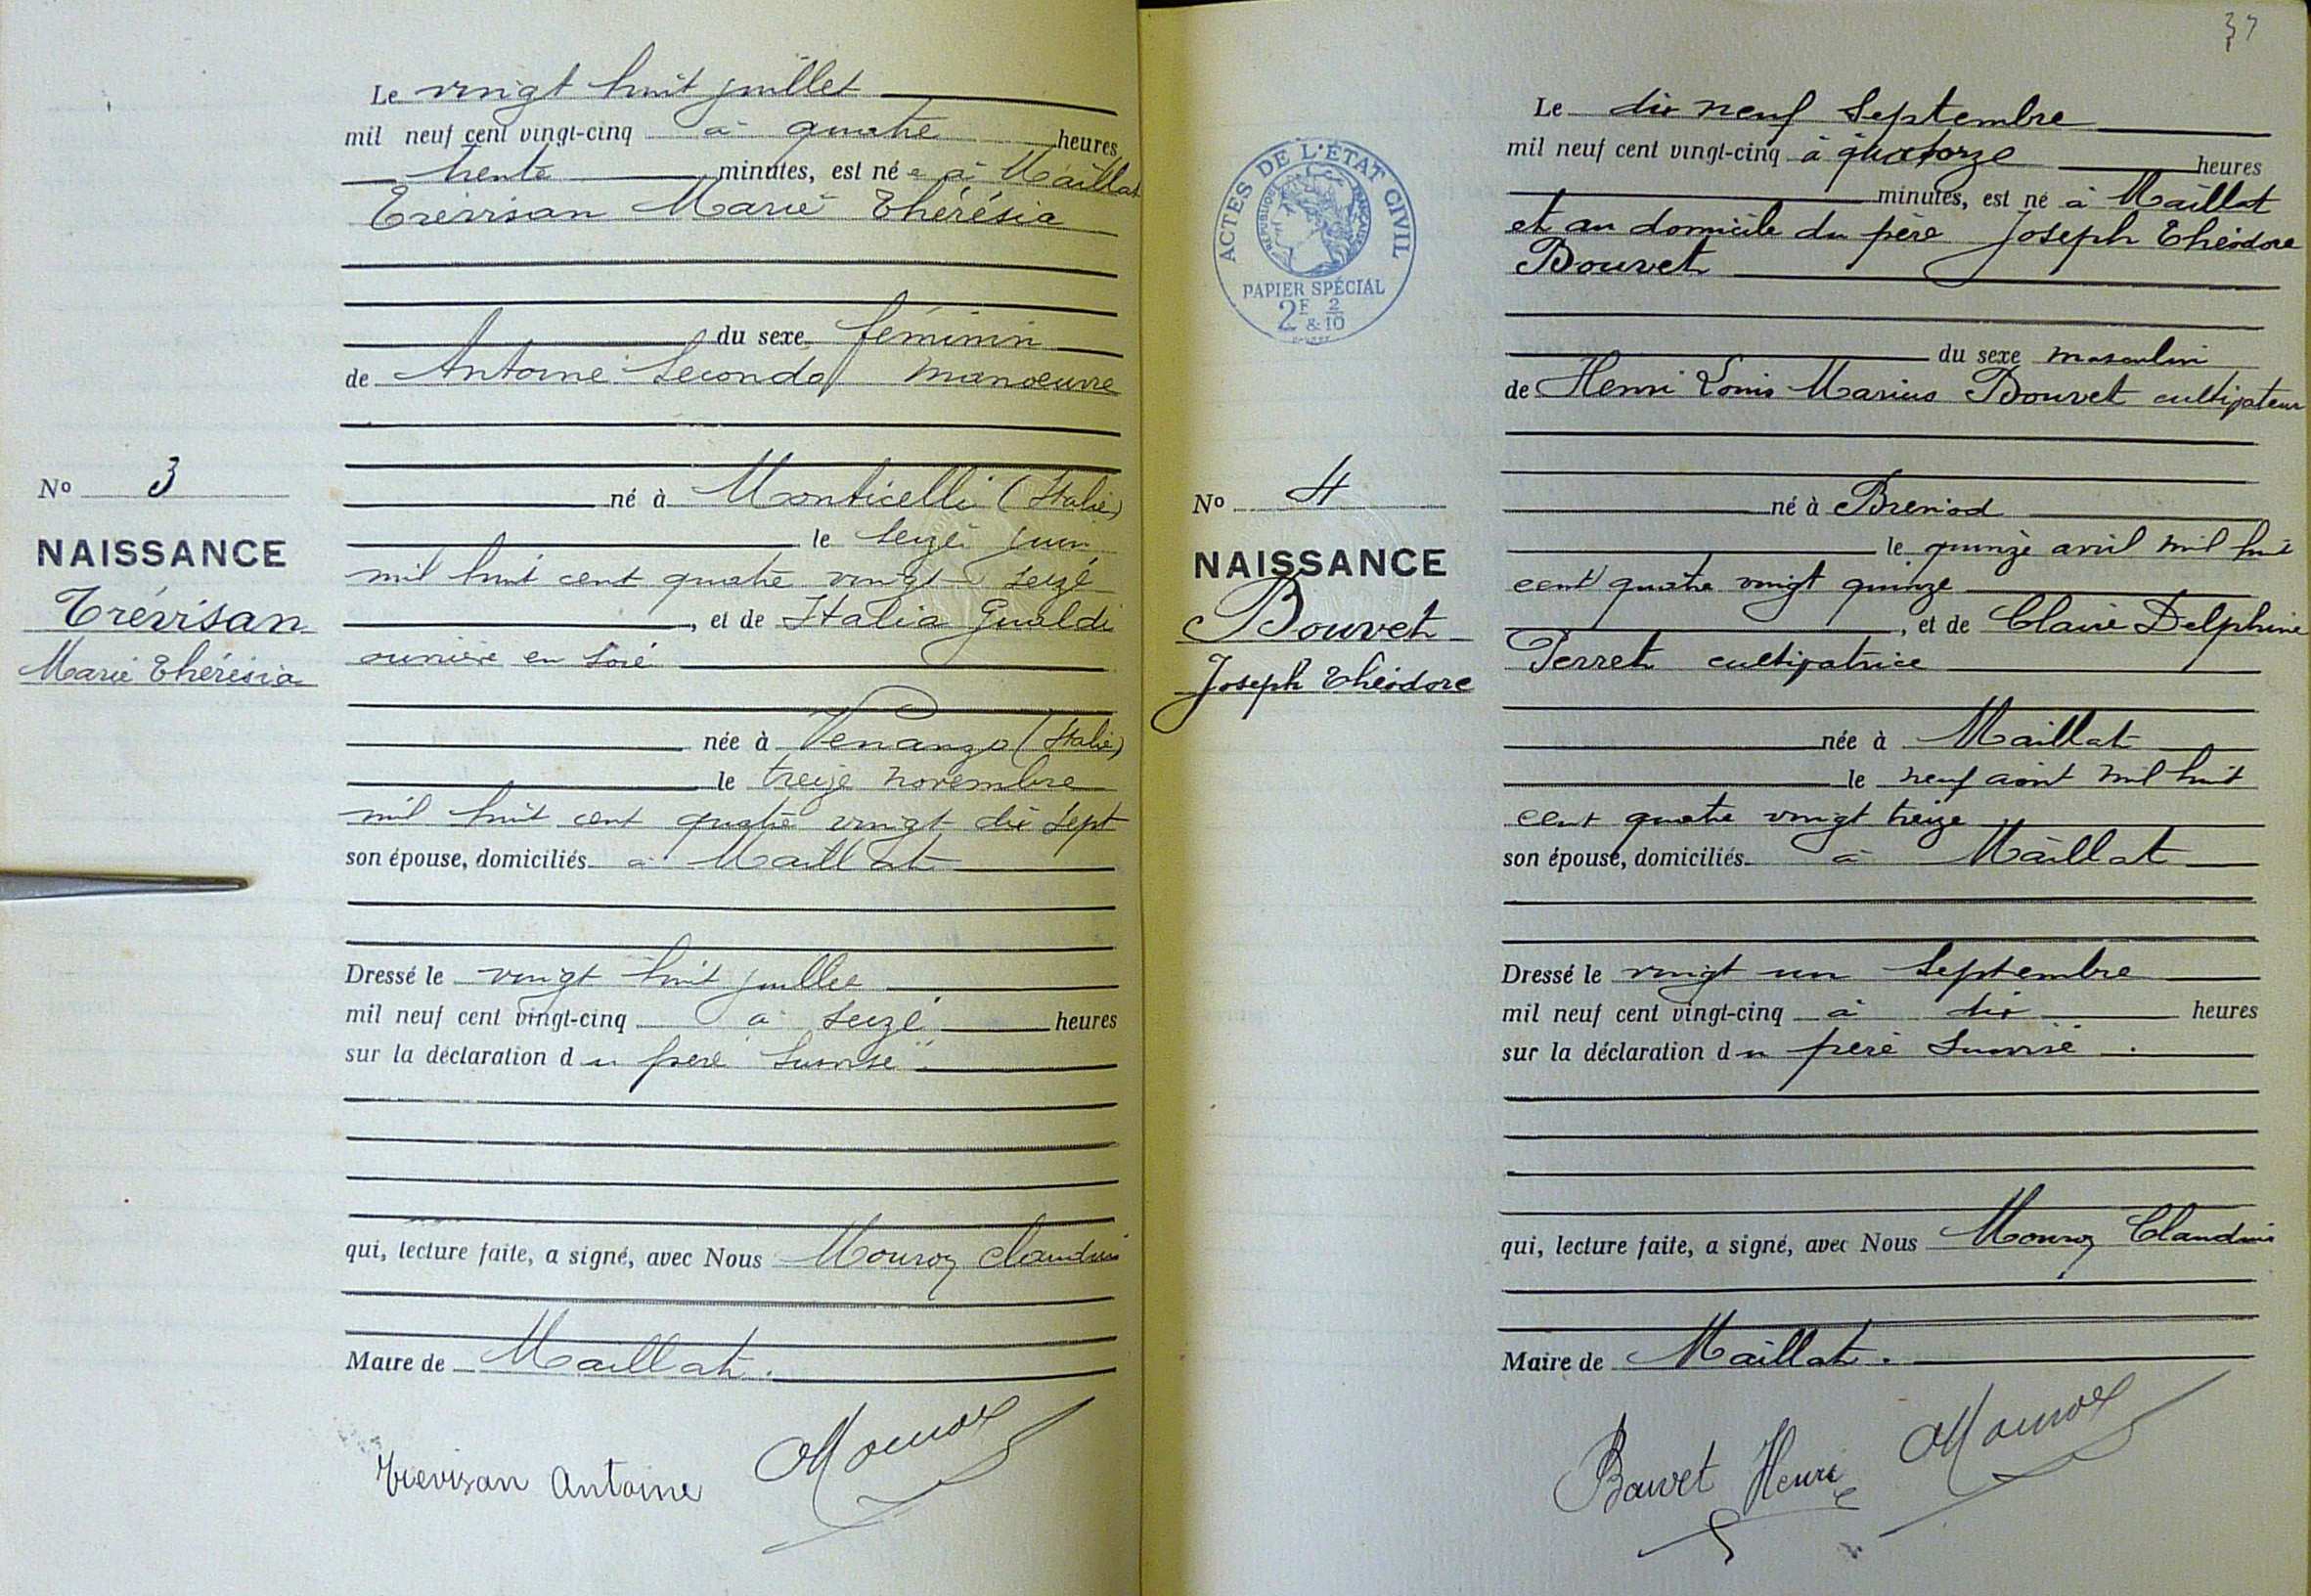 Le vingt huit juillet
mil neuf cent vingt-cinq à quatre heures
trente minutes, est née à Maillat
Trévisan Marie Thérésia
du sexe féminin
de Antoine Secondo manoeuvre
né à Monticelli (Italie)
le seize juin
mil huit cent quatre vingt seize
, et de Italia Gualdi
ouvrière en soie
née à Venanzo (Italie)
le treize novembre
mil huit cent quatre vingt dix sept
son épouse, domiciliés à Maillat
Dressé le vingt huit juillet
mil neuf cent vingt-cinq à seize heures
sur la déclaration du père susvisé
qui, lecture faite, a signé, avec Nous Mouroz Claudius
Maire de Maillat.
Trevisan Antoine Mouroz
No 3
NAISSANCE
Trévisan
Marie Thérésia
37
Le dix neuf Septembre
mil neuf cent vingt-cinq à quatorze heures
minutes, est né à Maillat
et au domicile du père Joseph Théodore
Bouvet
du sexe masculin
de Henri Louis Marius Bouvet cultivateur
né à Brénod
le quinze avril mil huit
cent quatre vingt quinze
, et de Claire Delphine
Perret cultivatrice
née à Maillat
le neuf août mil huit
cent quatre vingt treize
son épouse, domiciliés à Maillat
Dressé le vingt un Septembre
mil neuf cent vingt-cinq à dix heures
sur la déclaration du père susvisé.
qui, lecture faite, a signé, avec Nous Mouroz Claudius
Maire de Maillat.
Bouvet Henri Mouroz
ACTES DE L'ÉTAT CIVIL
RÉPUBLIQUE FRANÇAISE
PAPIER SPÉCIAL
2F & 2/10
No 4
NAISSANCE
Bouvet
Joseph Théodore